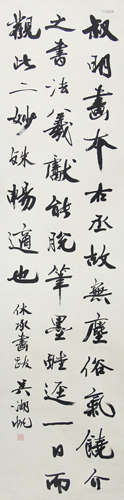 叔明畫本右丞故無塵俗氣饒介
之書法入羲獻能脫筆墨畦逕一日而
觀此二妙殊暢適也
休承畫跋 吳湖帆